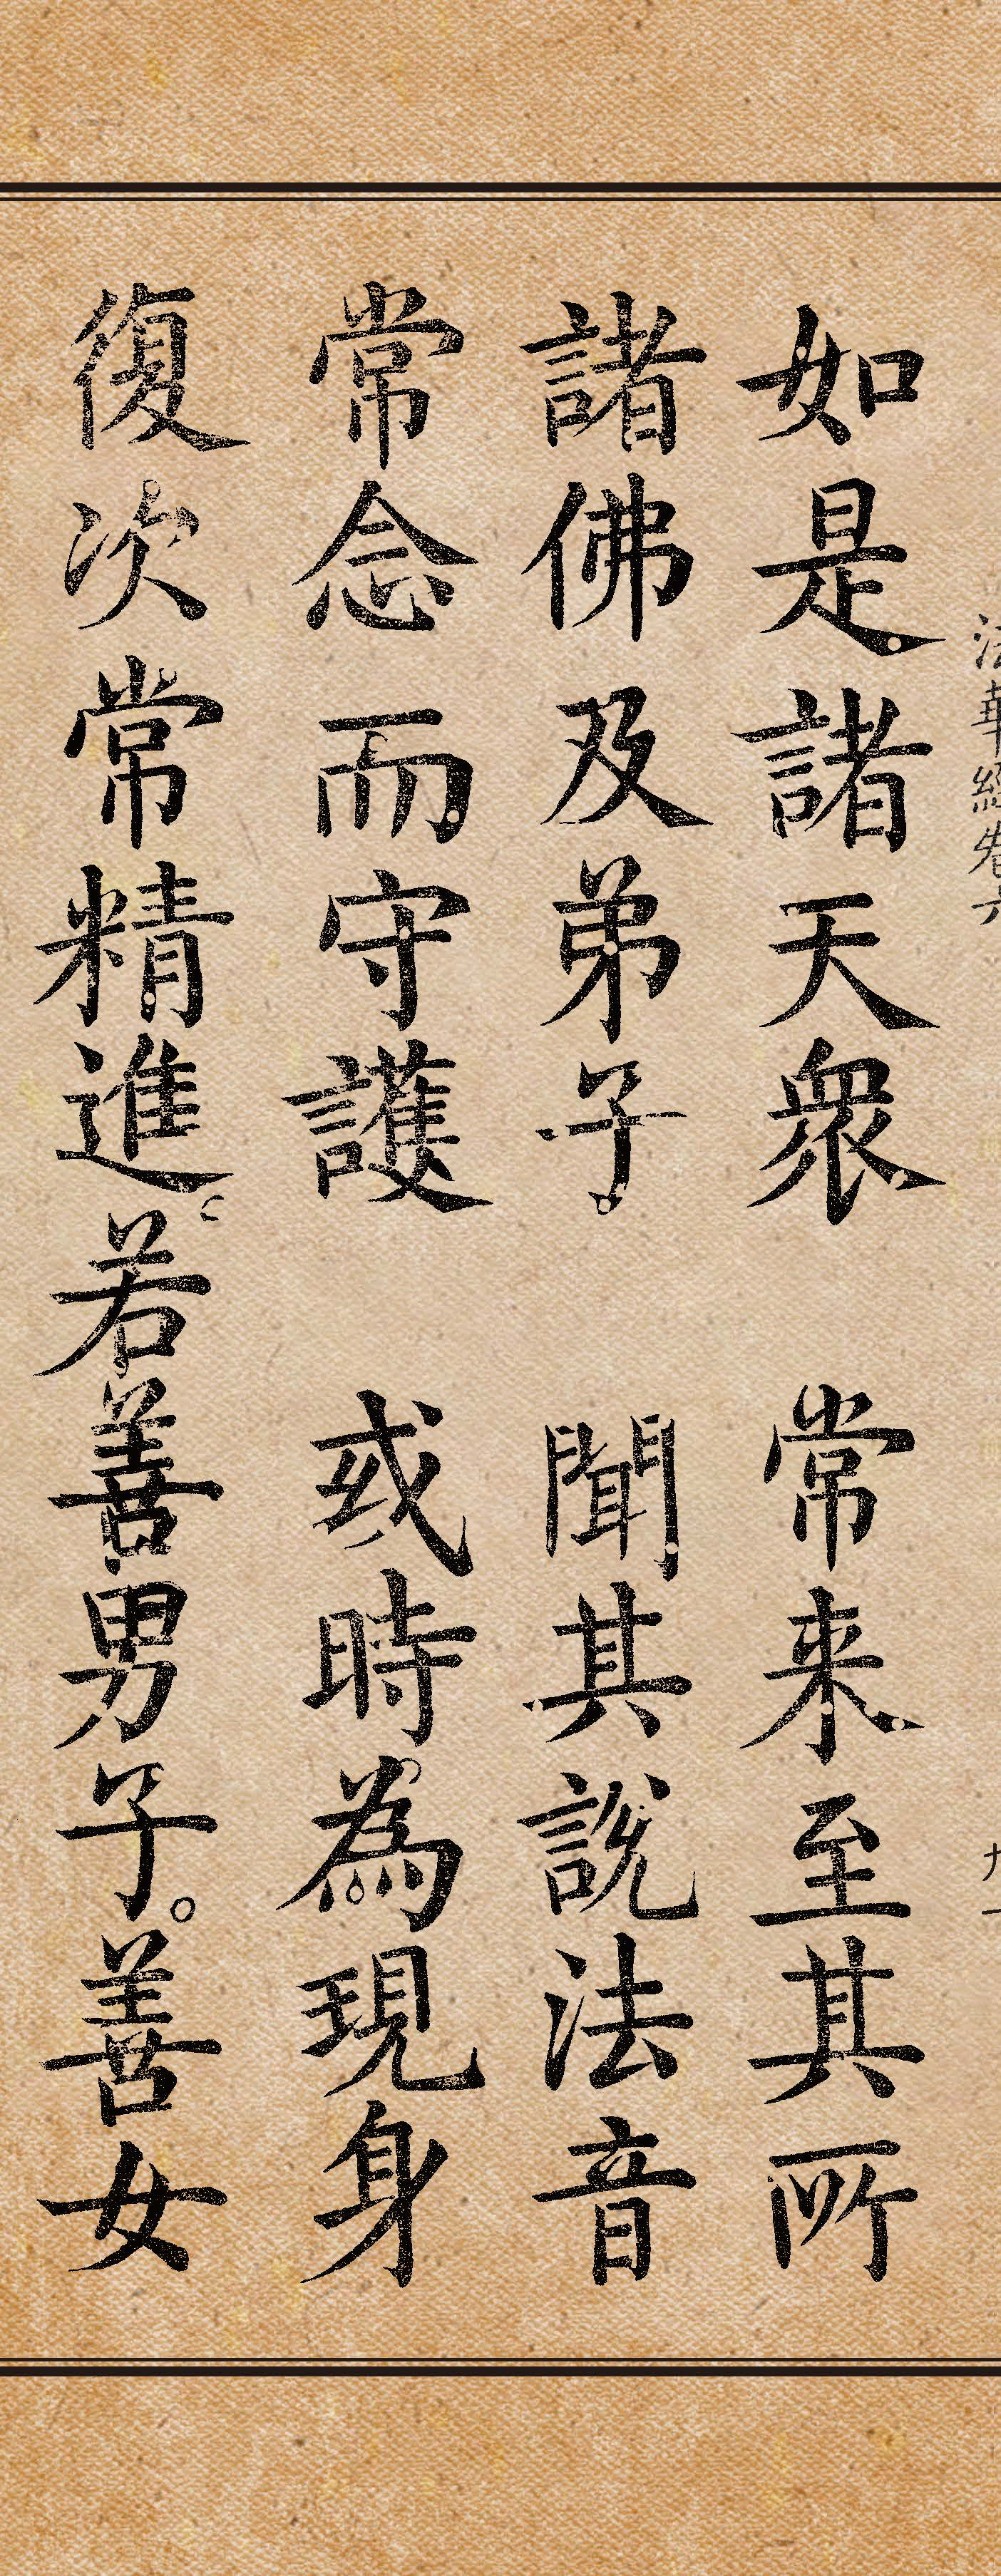 法華經卷六
九一
如是諸天衆　常来至其所
諸佛及弟子　聞其說法音
常念而守護　或時為現身
復次常精進若善男子。善女